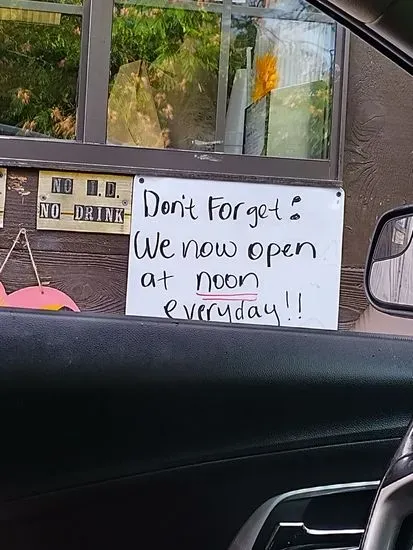 NO I.D.
NO DRINK
Don't Forget:
We now open
at noon
everyday!!